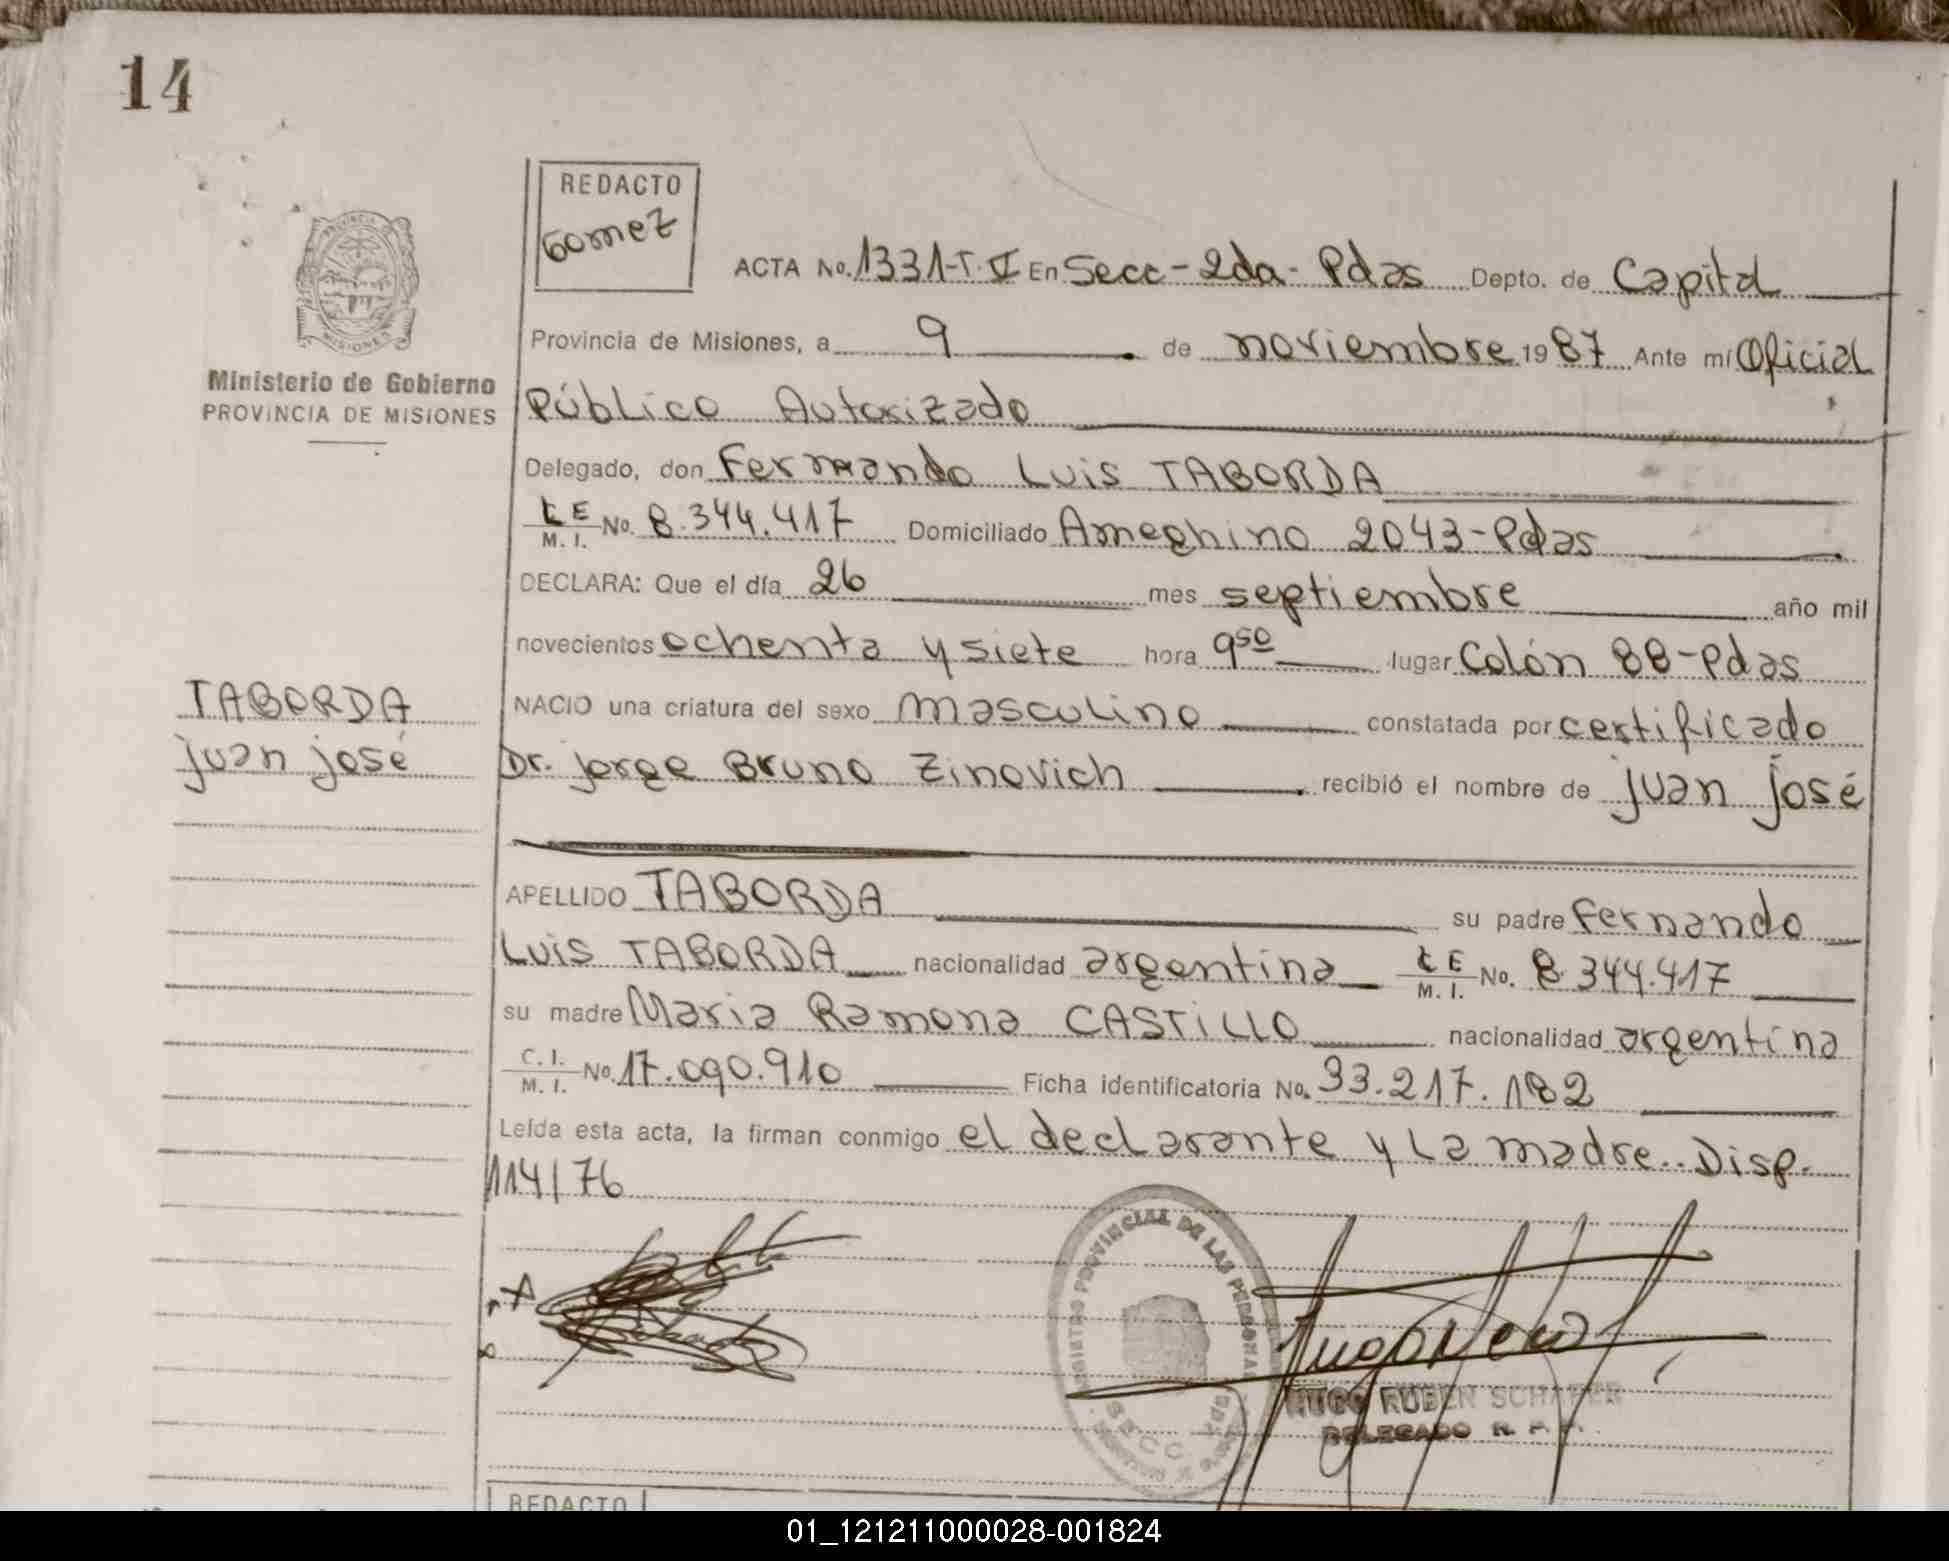 14
REDACTO
Gomez
PROVINCIA DE
MISIONES
Ministerio de Gobierno
PROVINCIA DE MISIONES
ACTA No. 1331-T. V En Secc-2da-Pdas Depto. de Capital
Provincia de Misiones, a 9 de noviembre 1987 Ante mí Oficial
Público Autorizado
Delegado, don Fernando Luis TABORDA
L E
M. I. No. 8.344.417 Domiciliado Ameghino 2043-Pdas
DECLARA: Que el día 26 mes septiembre año mil
novecientos ochenta y siete hora 9 50 lugar Colón 88-Pdas
TABORDA
juan josé
NACIO una criatura del sexo masculino constatada por certificado
Dr. jorge Bruno Zinovich recibió el nombre de juan josé
APELLIDO TABORDA su padre Fernando
Luis TABORDA nacionalidad argentina L E
M. I. No. 8.344.417
su madre Maria Ramona CASTILLO nacionalidad argentina
C. I.
M. I. No. 17.090.910 Ficha identificatoria No. 33.217.182
Leída esta acta, la firman conmigo el declarante y la madre.. Disp.
114/76
REGISTRO PROVINCIAL DE LAS PERSONAS
SECC
HUGO RUBEN SCHAFER
DELEGADO R. P. P.
REDACTO
01_121211000028-001824